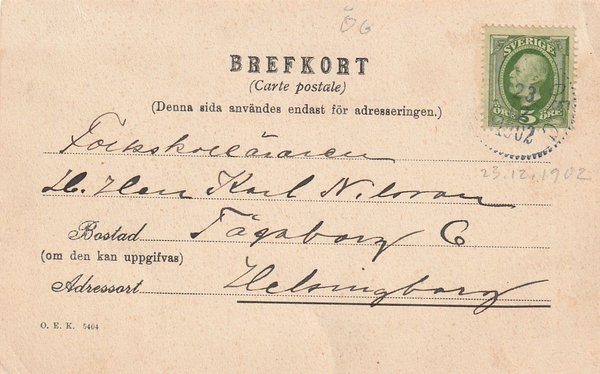 ÖG
BREFKORT
(Carte postale)
(Denna sida användes endast för adresseringen.)
SVERIGE
5
ÖRE
23
1902
23.12.1902
Folkskolläraren
H. Herr Karl Nilsson
Bostad Tågaborg 6
(om den kan uppgifvas)
Adressort Helsingborg
O. E. K. 5464